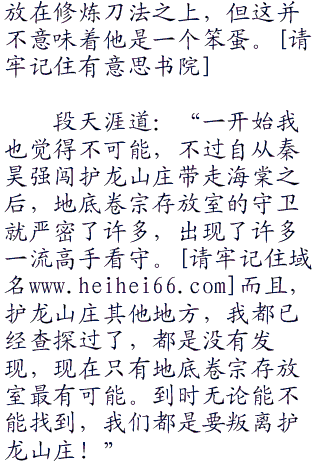 放在修炼刀法之上，但这并
不意味着他是一个笨蛋。[请
牢记住有意思书院]
段天涯道：“一开始我
也觉得不可能，不过自从秦
昊强闯护龙山庄带走海棠之
后，地底卷宗存放室的守卫
就严密了许多，出现了许多
一流高手看守。[请牢记住域
名www.heihei66.com]而且，
护龙山庄其他地方，我都已
经查探过了，都是没有发
现，现在只有地底卷宗存放
室最有可能。到时无论能不
能找到，我们都是要叛离护
龙山庄！”